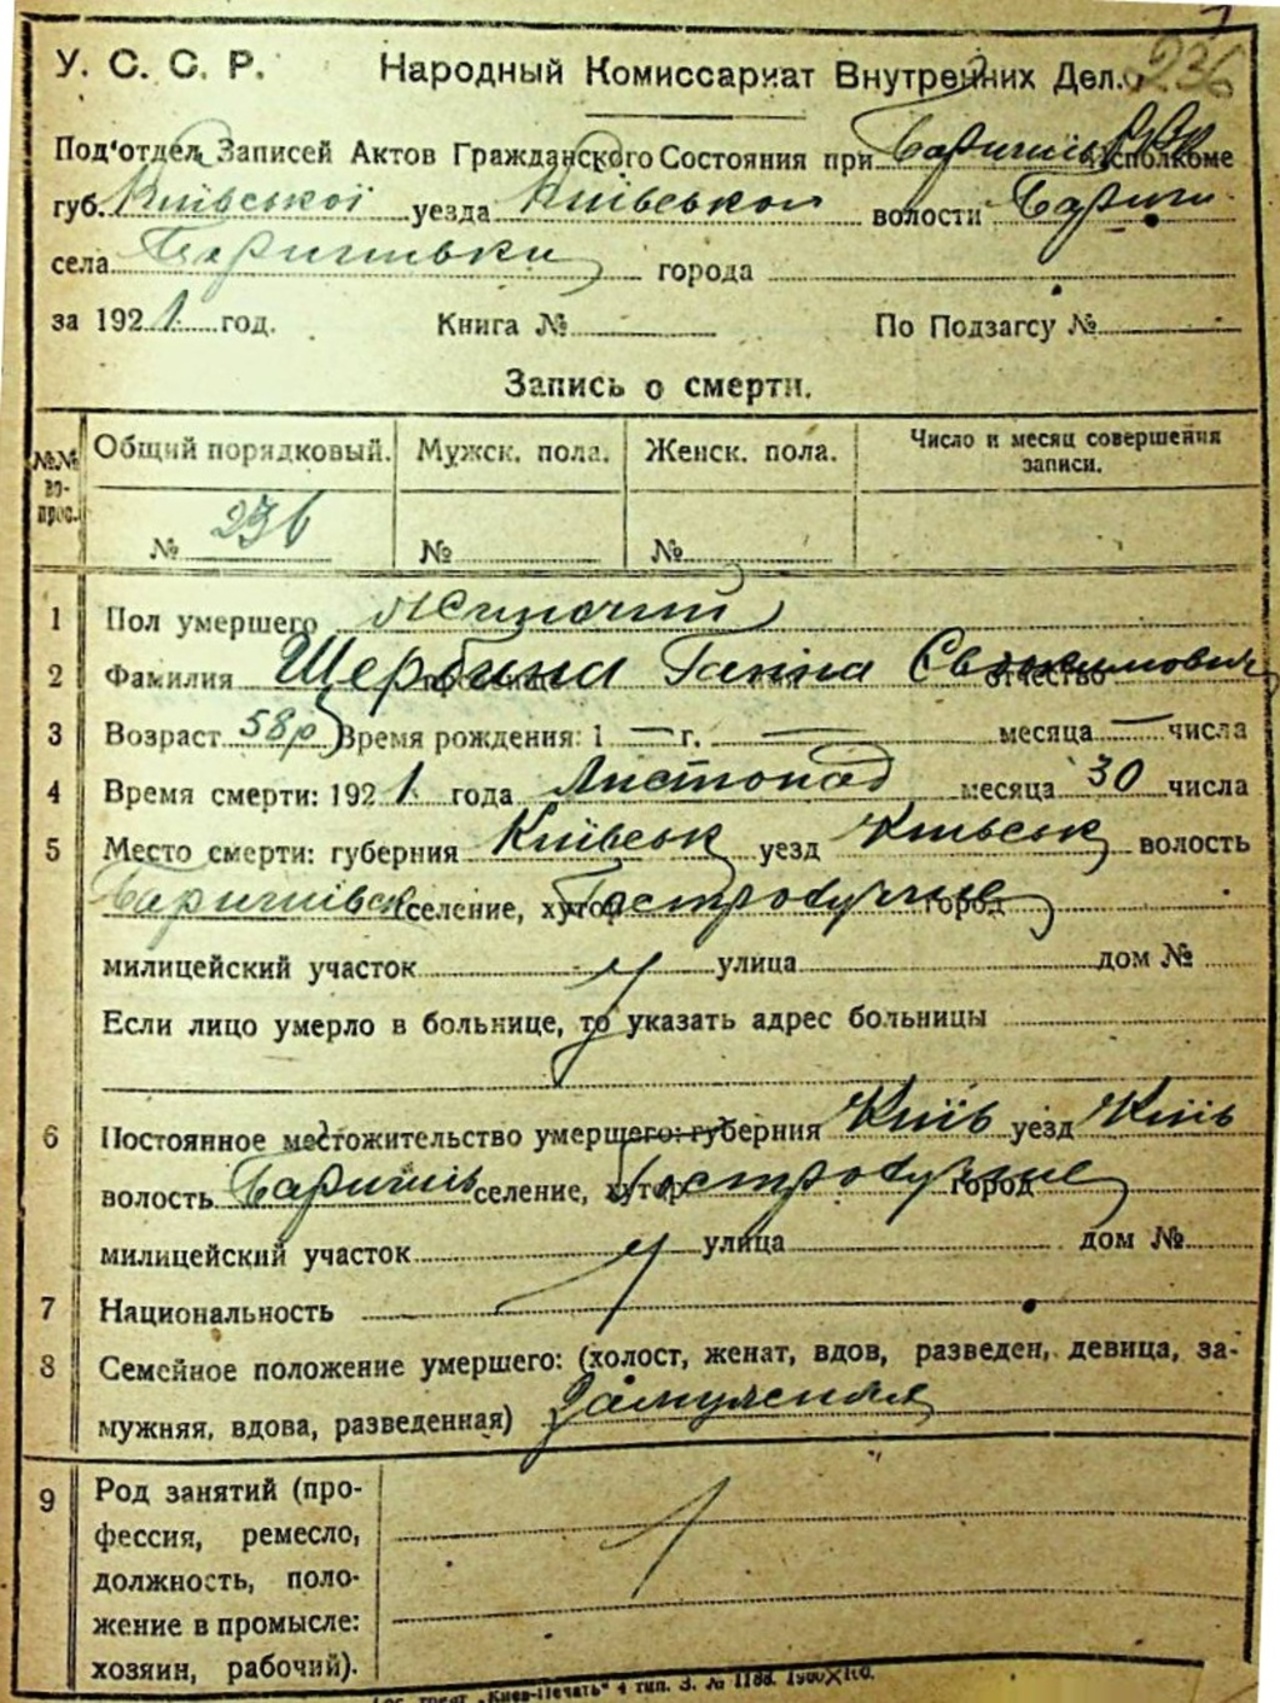 236
У. С. С. Р. Народный Комиссариат Внутренних Дел.
Под'отдел Записей Актов Гражданского Состояния при Исполкоме
губ. Київської уезда Київського волости Бариш
села Баришівки города
за 1921 год. Книга № По Подзагсу №
Запись о смерти.
№№ во- прос. Общий порядковый. Мужск. пола. Женск. пола. Число и месяц совершения записи.
№ 236 № №
1 Пол умершего Жіночий
2 Фамилия Щербина Ганна Євдокимовна отчество
3 Возраст 58 р Время рождения: 1 — г. — месяца — числа
4 Время смерти: 1921 года Листопад месяца 30 числа
5 Место смерти: губерния Київськ уезд Київськ волость
Баришівськ селение, хутор город
милицейский участок улица дом №
Если лицо умерло в больнице, то указать адрес больницы
6 Постоянное местожительство умершего: губерния Київ уезд Київ
волость Баришів селение, хутор город
милицейский участок улица дом №
7 Национальность
8 Семейное положение умершего: (холост, женат, вдов, разведен, девица, за-
мужняя, вдова, разведенная) Замужняя
9 Род занятий (про-
фессия, ремесло,
должность, поло-
жение в промысле:
хозяин, рабочий).
„Киев-Печать" 4 тип. З. № 1188.